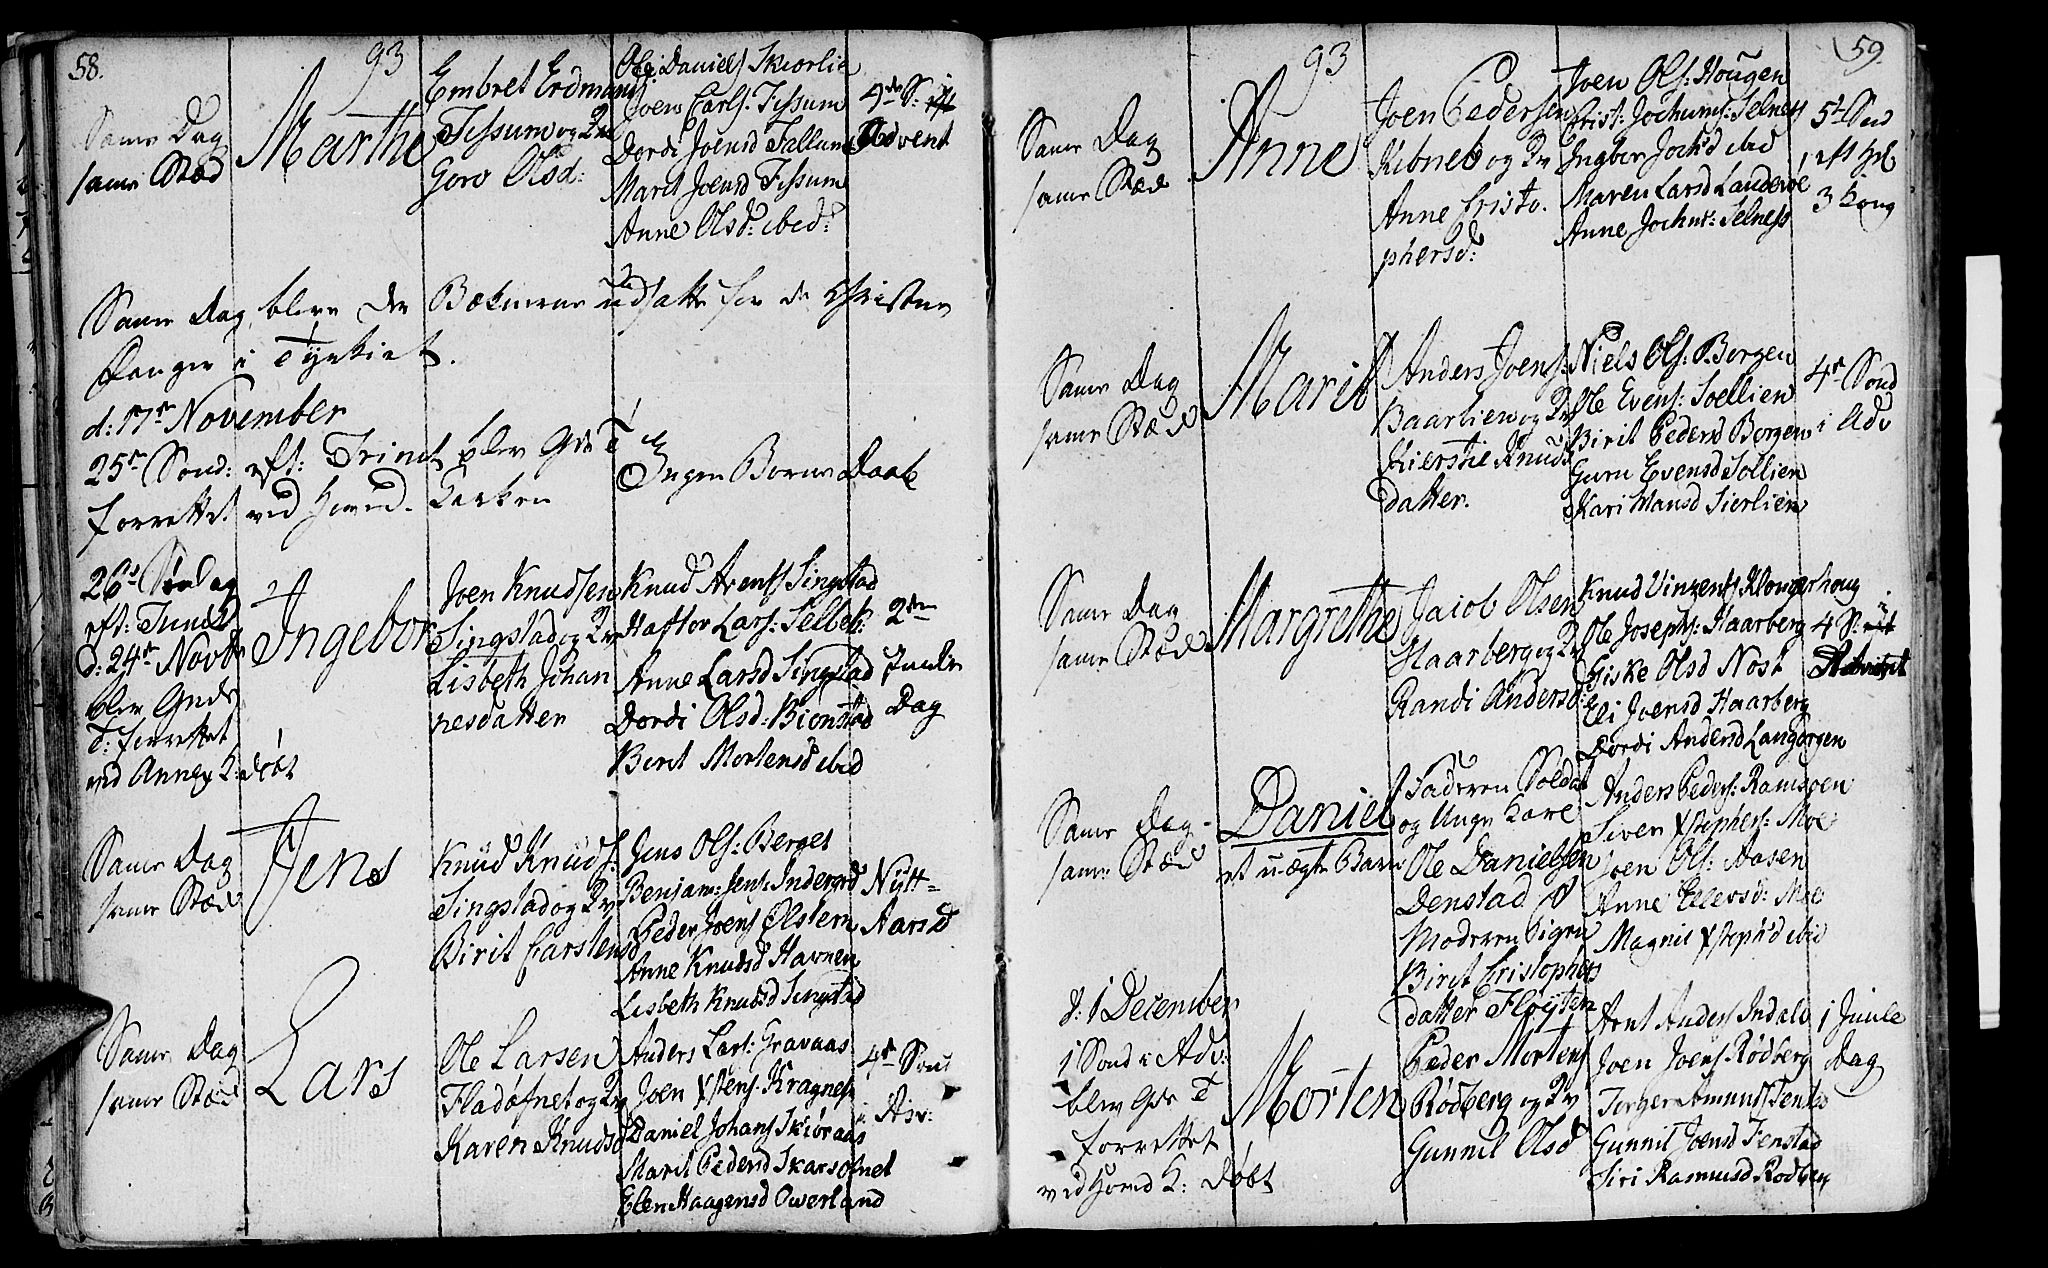 58.
93
Same Dag
same Stæd
Marthe
Embret Erdmands
Tessum og Qv
Goro Olsd:
Ole Daniels Skiorlie
Joen Carls: Tessum
Dordi Joensd Fallun
Maret Joensd Tessum
Anne Olsd: ibid:
4de S: i
Advent
Same Dag bleve de Bæknerne udsatte for de Christne
Fanger i Tyrkiet.
d: 17n November
25n Sond: eft: Trinit blev Gds T
forrettet ved Hoved-Kirken
Ingen Børne Daab
26de Søndag
eft: Trinit
d: 24n Novbr
blev Guds
T: forrettet
ved Annex K: døbt
Ingebor
Joen Knudsen
Singstad og Qv
Lisbeth Johan
nesdatter
Knud Arents Singstad
Haftor Lars: Selbek:
Anne Larsd Singstad
Dordi Olsd: Biønstad
Beret Mortensd ibid
2den
Juule
Dag
Same Dag
same Stæd
Jens
Knud Knuds:
Singstad og Qv
Birit Carstensd
Jens Ols: Berget
Benjam: Jens: Indergrd
Peder Joens Olstern
Anne Knudsd Havnen
Lisbeth Knudsd Singstad
Nÿtt-
Aarsd
Same Dag
same Stæd
Lars
Ole Larsen
Fladøfnet og Qv
Karen Knudsd
Anders Lars: Gravaas
Joen Xstens Kragnes
Daniel Johans Skiøraas
Marit Pedersd Skarsøfnet
Elen Haagensd Owerland
4n Sond
i Adv:
59.
93
Same Dag
same Stæd
Anne
Joen Pedersen
Kibneb og Qv
Anne Cristo.
phersd:
Joen Ols: Hougen
Crist: Jochums: Selness
Ingbor Joch'd ibid
Maren Larsd Landerøe
Anne Jochms: Selness
5t Snd
eft Hel
3 Kong
Same Dag
same Stæd
Marit
Anders Joens:
Baarlien og Qv
Kierstie Knuds
datter.
Niels Ols: Borgen
Ole Evens: Soellien
Birit Pedersd Borgen
Guru Evensd Sollien
Kari Hansd Sierlien
4n Sond
i Adv
Same Dag
same Stæd
Margrethe
Jacob Olsen
Haarberg og Qv
Randi Andersd:
Knud Vinzents Klongerhoug
Ole Josephs: Haarberg
Giske Olsd Nost
Eli Joensd Haarberg
Dordi Andersd Langorgen
4 S: i
Advent
Same Dag
same Stæd
Daniel
et uægte Barn
Faderen Soldat
og Unge Karl
Ole Danielsen
Denstad
Moderen Pigen
Birit Cristophers
datter Fløyten
Anders Peders: Ramsøen
Siver Xstophers: Moe
Joen Ols: Aasen
Anne Ellevsd: Moe
Magnil Xstoph'd ibid
d: 1 December
1 Sond i Adv:
blev Gds T
forrettet
ved Hoved K: døbt
Morten
Peder Mortens
Rødberg og Qv
Gunnil Olsd
Arnt Anders Indals
Joen Joens Rødberg
Torger Amunds Tenstd
Gunnil Joensd Tenstad
Siri Rasmusd Rødberg
1 Juule
Dag